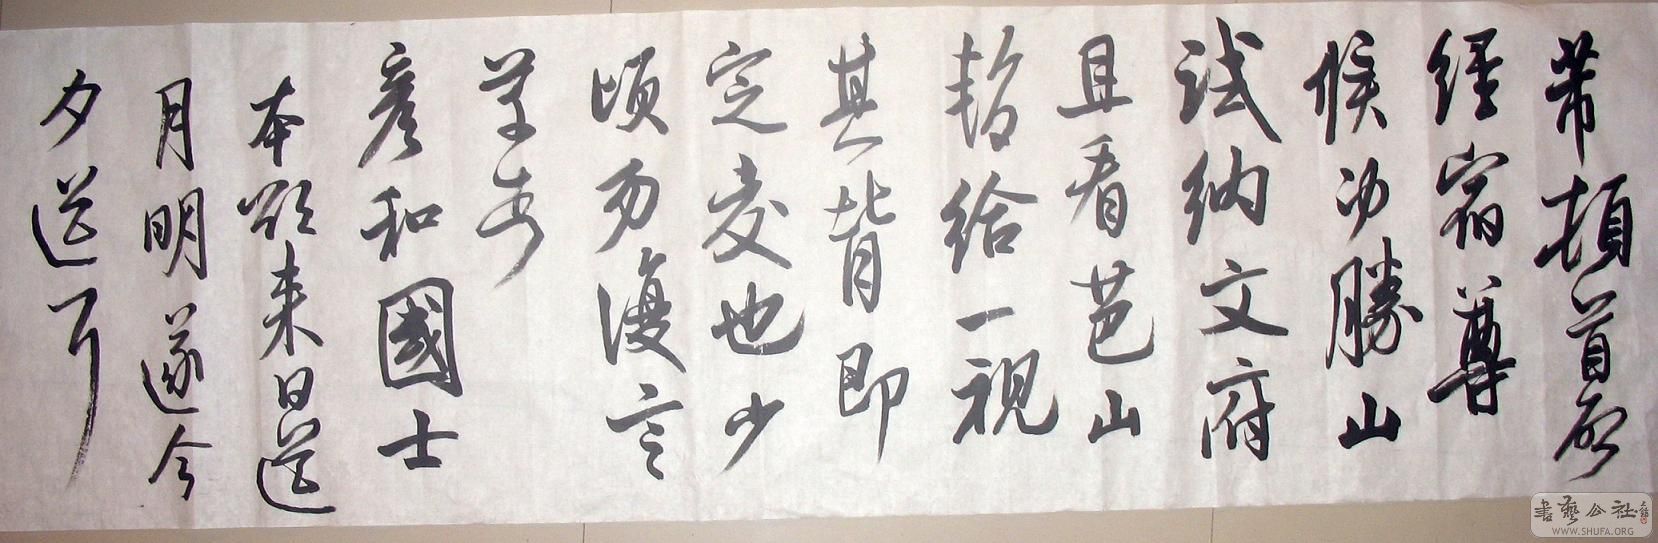 芾頓首啟
經宿尊
候沖勝山
試納文府
且看芭山
暫給一視
其背即
定交也少
頃勿復言
彥和國士
本欲來日送
月明遂今
夕送耳
書藝公社
WWW.SHUFA.ORG